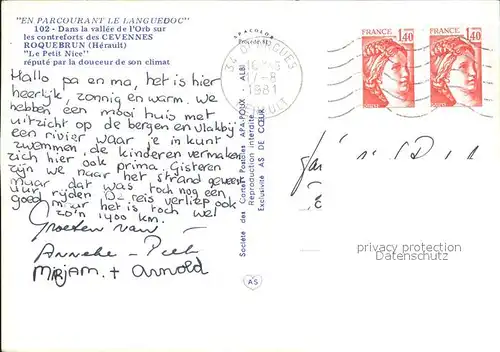 "EN PARCOURANT LE LANGUEDOC"
102 - Dans la vallée de l'Orb sur
les contreforts des CEVENNES
ROQUEBRUN (Hérault)
"Le Petit Nice"
réputé par la douceur de son climat
Hallo pa en ma, het is hier
heerlijk, zonnig en warm. We
hebben een mooi huis met
uitzicht op de bergen en vlakbij
een rivier waar je in kunt
zwemmen, de kinderen vermaken
zich hier ook prima. Gisteren
zijn we naar het strand geweest
maar dat was toch nog een
uur rijden. De reis verliep ook
goed maar het is toch wel
zo'n 1400 km.
Groeten van
Anneke - Piet
Mirjam. + Arnold
SPACOLOR
Société des Cartes Postales APA-POUX - ALBI
Reproduction interdite
Exclusivité AS DE CŒUR
AS
34
17-8
1981
HERAULT
FRANCE
1,40
FRANCE
1,40
privacy protection
www.ansichtskarten-center.de